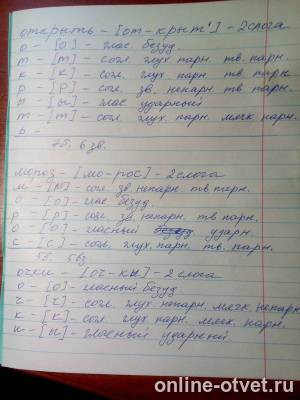 открыть - [от - крыт'] - 2 слога
о - [о] - глас. безуд.
т - [т] - согл. глух. парн. тв. парн.
к - [к] - согл. глух. парн. тв. парн
р - [р] - согл. зв. непарн. тв. парн.
ы - [ы] - глас ударный
т - [т] - согл. глух. парн. мягк. парн.
ь -
7б. 6 зв.
мороз - [мо - рос] - 2 слога
м - [м] - согл. зв. непарн. тв парн.
о - [о] - глас безуд.
р - [р] - согл. зв. непарн. тв парн.
о - [о] - гласный ударн.
с - [с] - согл. глух. парн. тв. парн.
5б. 5зв
очки - [оч - кы] - 2 слога
о - [о] - гласный безуд
ч - [ч] - согл. глух непарн. мягк непарн
к - [к] - согл. глух парн. мягк. парн.
и - [ы] - гласный ударный.
online-otvet.ru